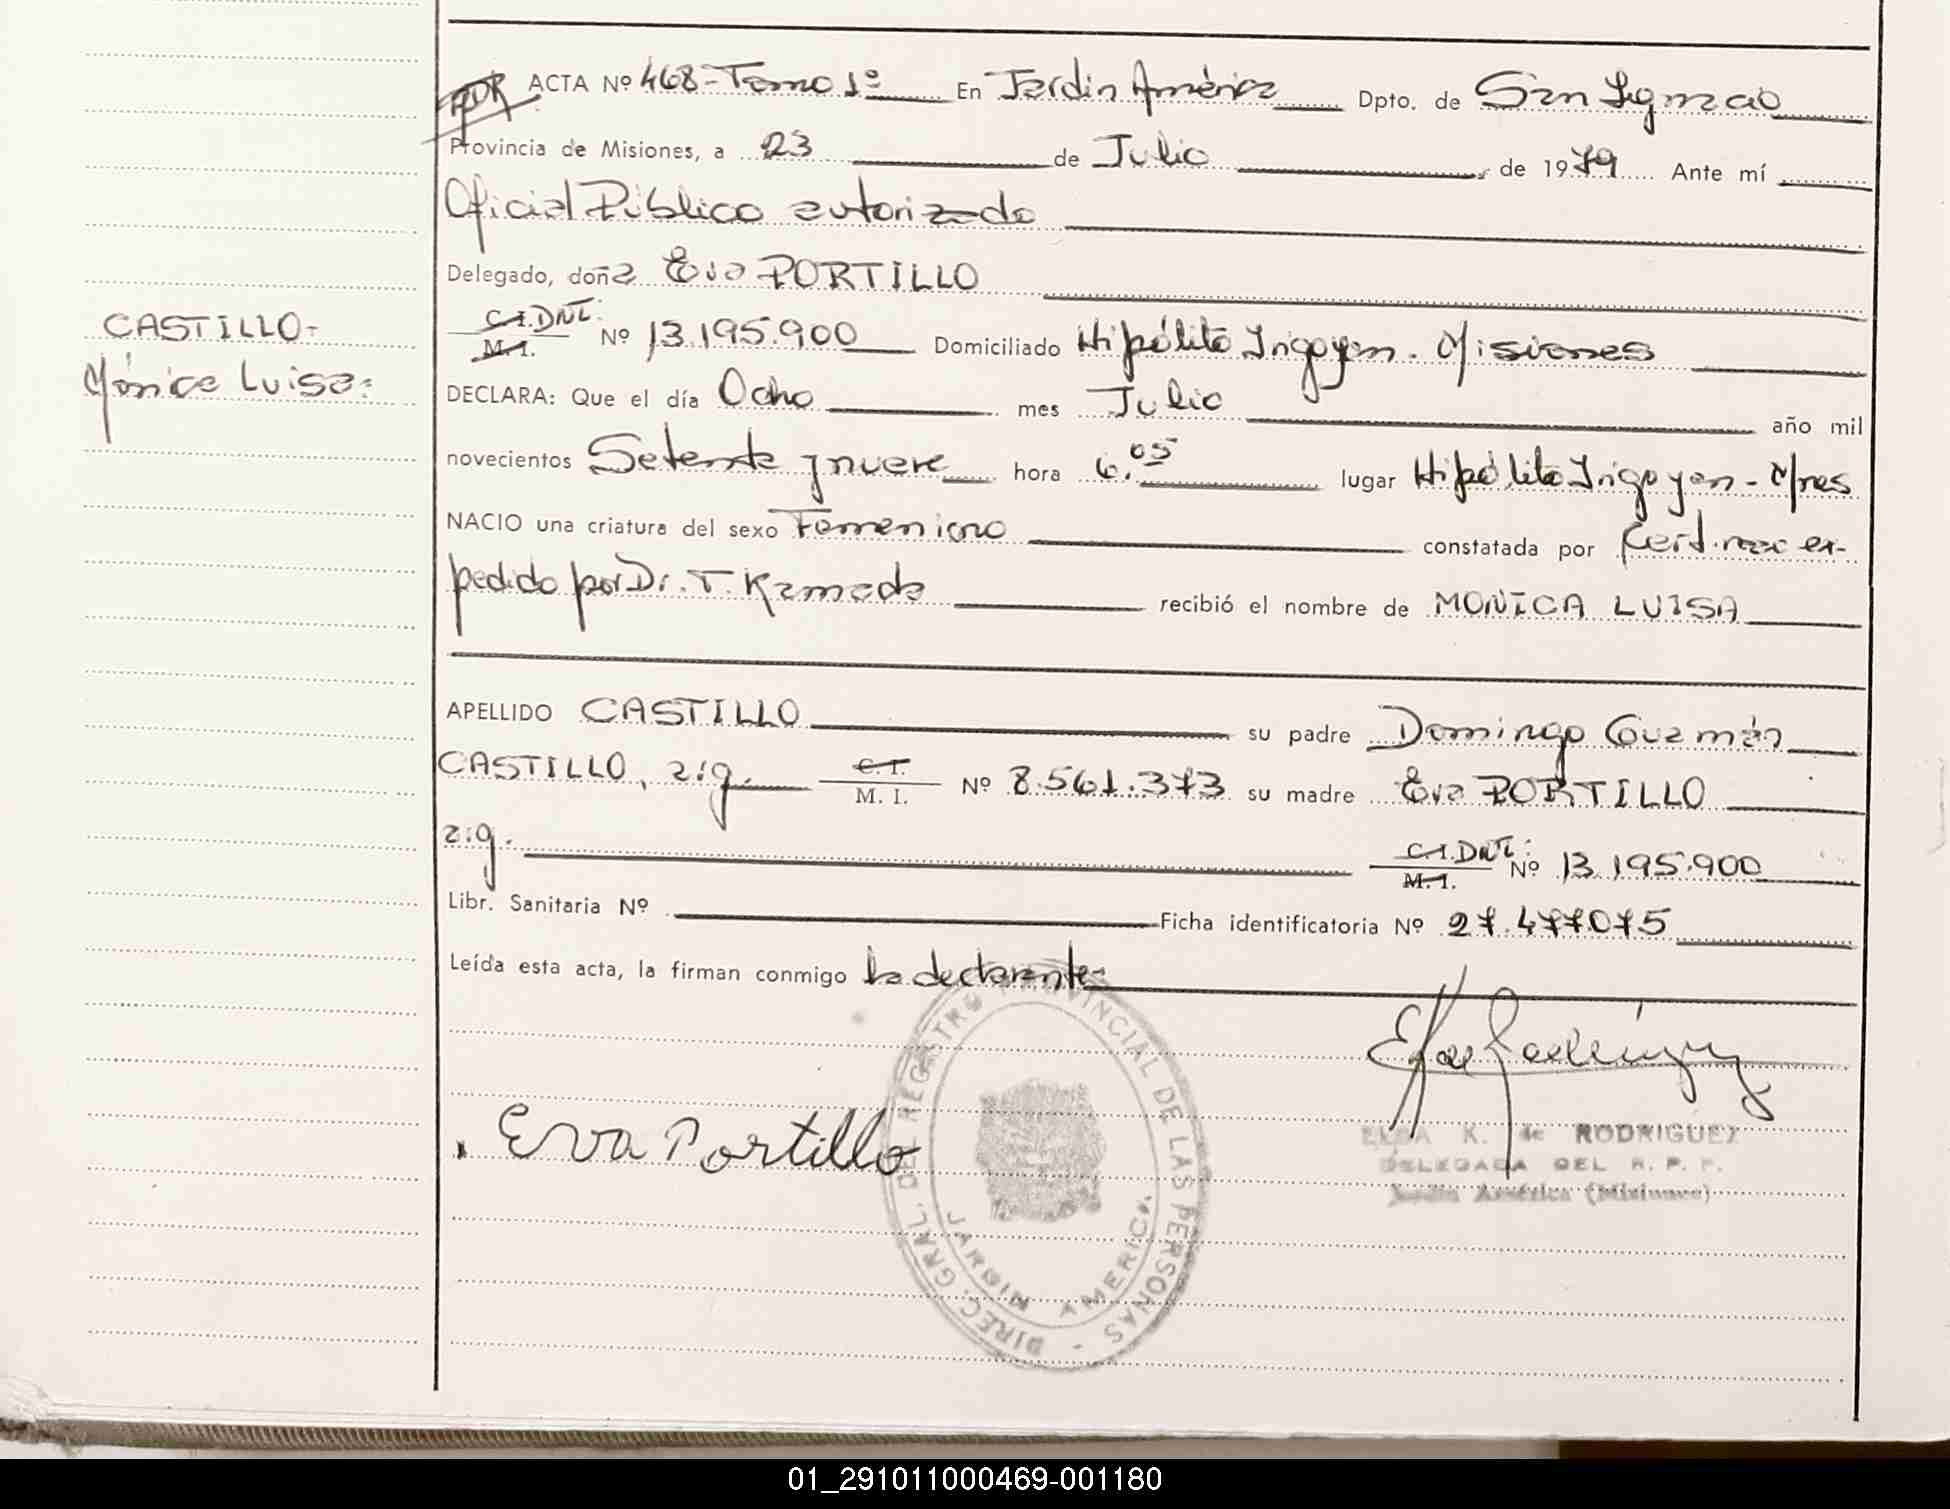 ACTA Nº 468-Tomo 1º En Jardín América Dpto. de San Ignacio
Provincia de Misiones, a 23 de Julio de 1979 Ante mí
Oficial Público autorizado
Delegado, doña Eva PORTILLO
C.I. DNI. M.I. Nº 13.195.900 Domiciliado Hipólito Irigoyen. Misiones
CASTILLO-
Mónica Luisa:
DECLARA: Que el día Ocho mes Julio año mil
novecientos Setenta y nueve hora 6.05 lugar Hipólito Irigoyen - Mnes
NACIO una criatura del sexo Femenino constatada por Cert. nac ex-
pedido por Dr. T. Kamada recibió el nombre de MONICA LUISA
APELLIDO CASTILLO su padre Domingo Guzmán
CASTILLO, arg. C. I. M. I. Nº 8.561.373 su madre Eva PORTILLO
arg. C.I. DNI. M.I. Nº 13.195.900
Libr. Sanitaria Nº Ficha identificatoria Nº 27.477075
Leída esta acta, la firman conmigo la declarante-
DIREC. GRAL. DEL REGISTRO PROVINCIAL DE LAS PERSONAS -
JARDIN AMERICA
Eva Portillo
ELBA K. de RODRIGUEZ
DELEGADA DEL R. P. P.
Jardín América (Misiones)
01_291011000469-001180